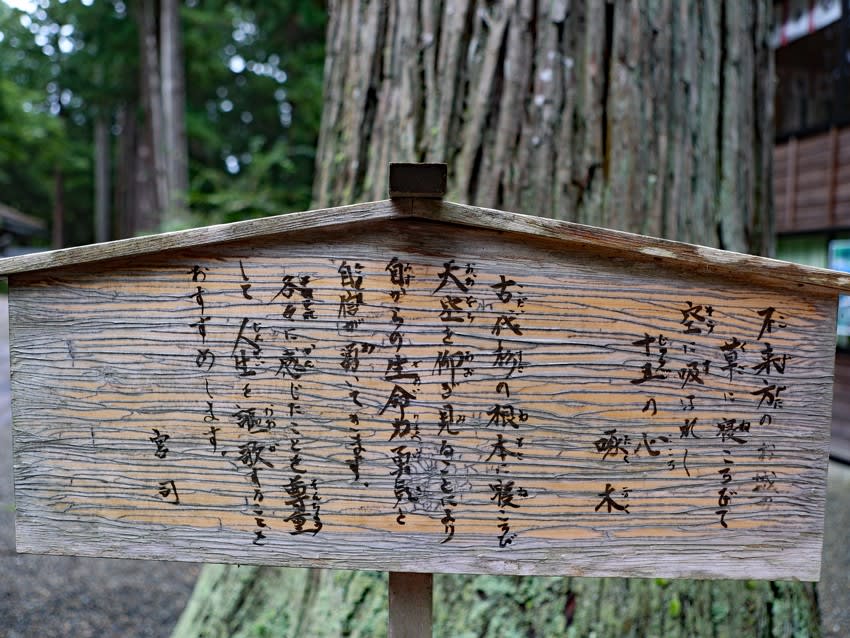 不来方のお城の
草に寝ころびて
空に吸はれし
十五の心
啄木
古代杉の根本に寝ころび
天空を仰ぎ見ることにより
からの生命力勇気と
が ってきます。
各々に感じたことを尊重
して 人生を謳歌することを
おすすめします。
宮司